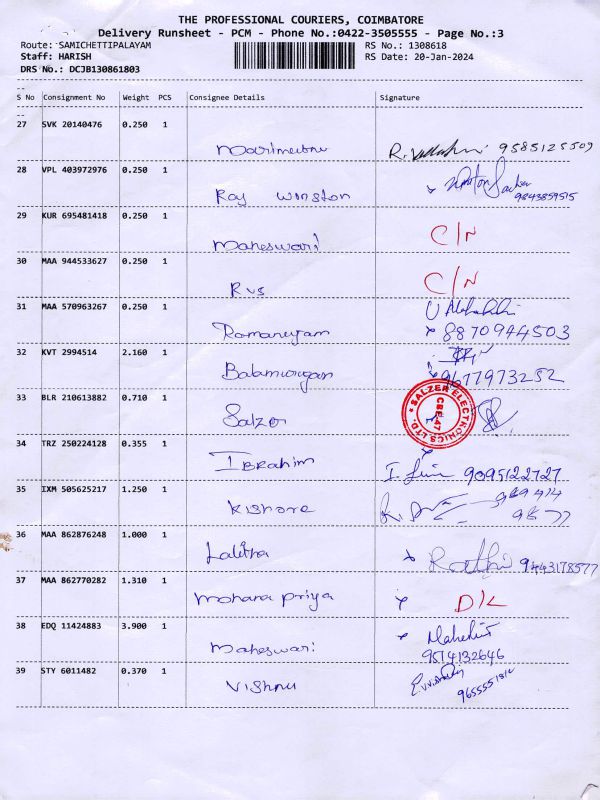 THE PROFESSIONAL COURIERS, COIMBATORE
Delivery Runsheet - PCM - Phone No.:0422-3505555 - Page No.:3
Route: SAMICHETTIPALAYAM RS No.: 1308618
Staff: HARISH RS Date: 20-Jan-2024
DRS No.: DCJB130861803
S No Consignment No Weight PCS Consignee Details Signature
27 SVK 20140476 0.250 1
Marimuthu R. 9585125509
28 VPL 403972976 0.250 1
Raj Winston 9843859515
29 KUR 695481418 0.250 1
Maheswari C/N
30 MAA 944533627 0.250 1
RVS C/N
31 MAA 570963267 0.250 1
Ramaneyam 8870944503
32 KVT 2994514 2.160 1
Balamurugan 9677973252
33 BLR 210613882 0.710 1
Salzer SALZER ELECTRONICS LTD. CBE-47
34 TRZ 250224128 0.355 1
Ibrahim 9095122727
35 IXM 505625217 1.250 1
Kishore
36 MAA 862876248 1.000 1
Lalitha Rathi 9443178577
37 MAA 862770282 1.310 1
Mohana Priya D/L
38 EDQ 11424883 3.900 1
Maheswari 9514132646
39 STY 6011482 0.370 1
Vishnu